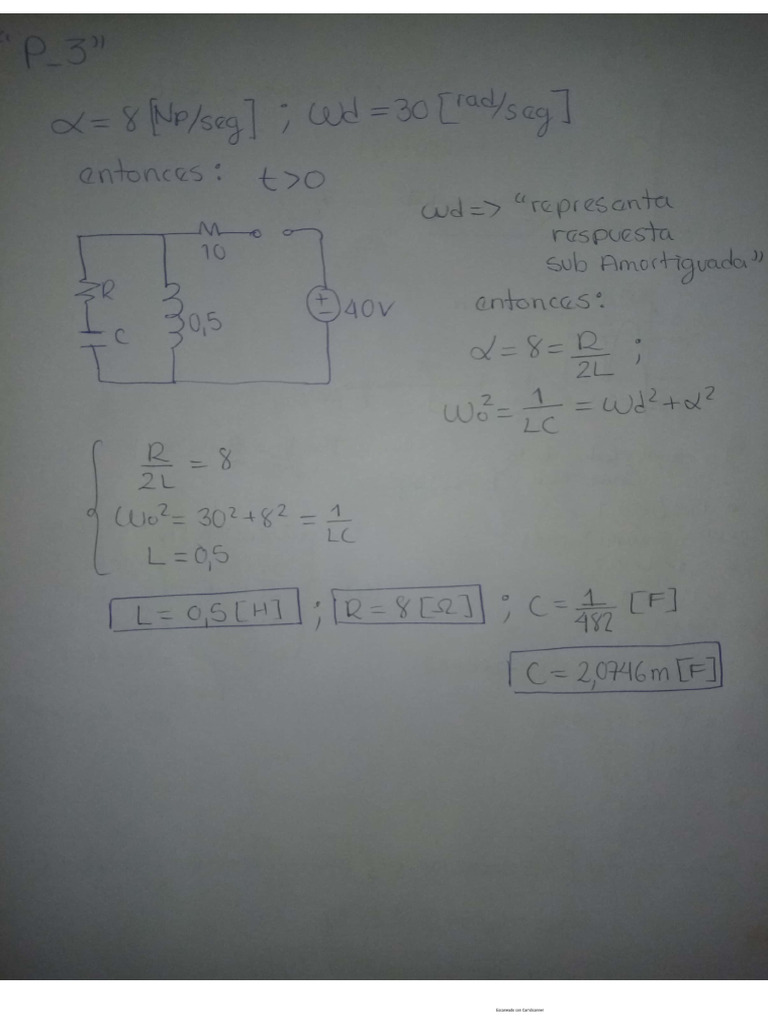 "P_3"
α = 8 [Np/seg] ; Wd = 30 [rad/seg]
entonces: t>0
Wd => "representa
respuesta
sub Amortiguada"
10
R
C
0,5
+
-
40V
entonces:
α = 8 = R/2L ;
Wo² = 1/LC = Wd² + α²
R/2L = 8
Wo² = 30² + 8² = 1/LC
L = 0,5
L = 0,5 [H] ; R = 8 [Ω] ; C = 1/482 [F]
C = 2,0746m [F]
Escaneado con CamScanner